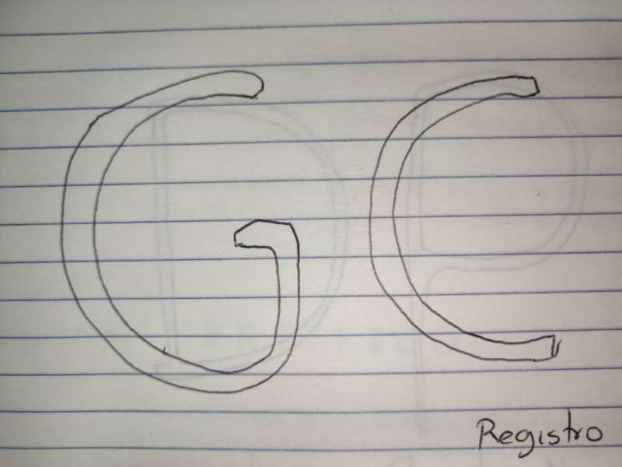 GC
Registro